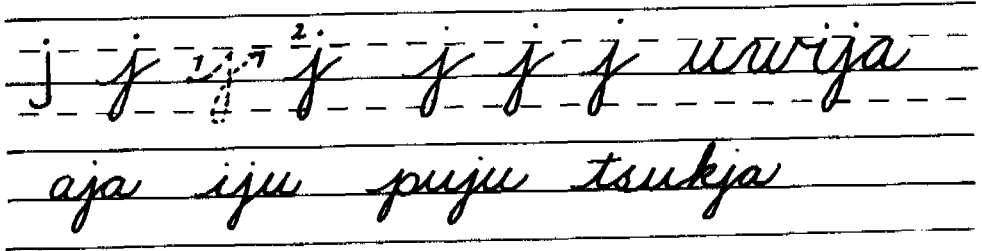 j j 1 j 2 j j j j uwija
aja iju puju tsukja